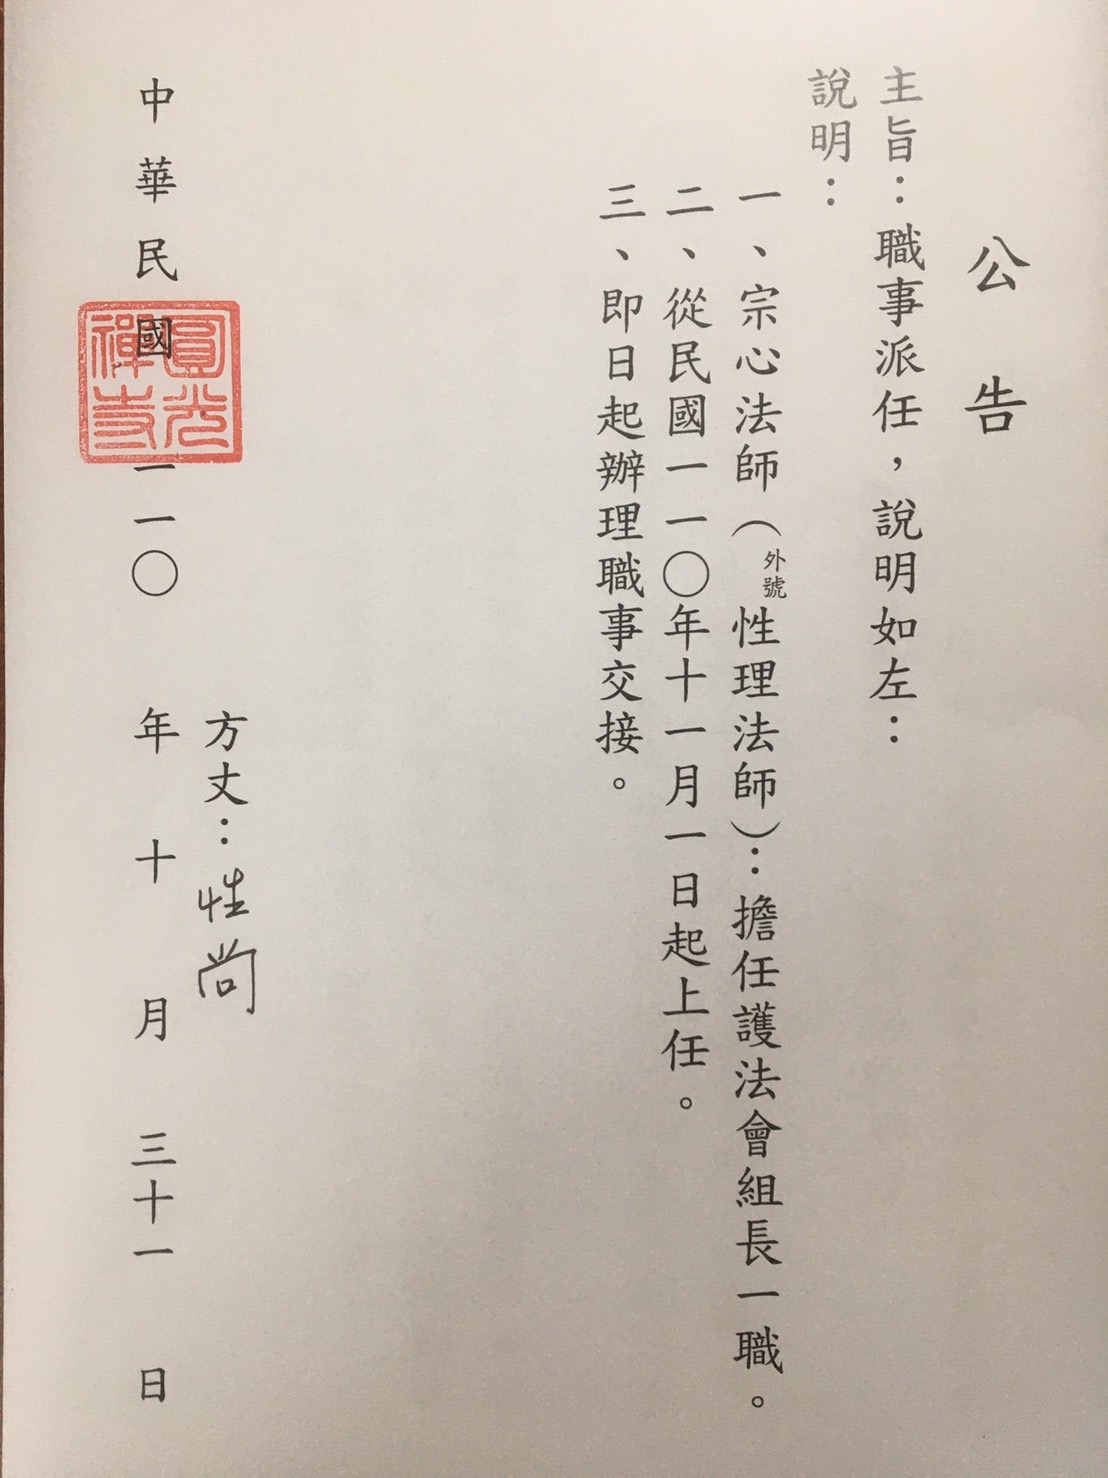 公告
主旨：職事派任，說明如左：
說明：
一、宗心法師（外號性理法師）：擔任護法會組長一職。
二、從民國一一〇年十一月一日起上任。
三、即日起辦理職事交接。
方丈：性尚
中華民國一一〇年十月三十一日
圓光禪寺